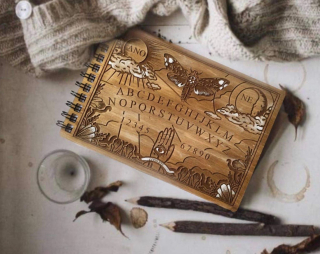 ANO
NE
ABCDEFGHIJKLM
NOPQRSTUVWXYZ
12345
67890